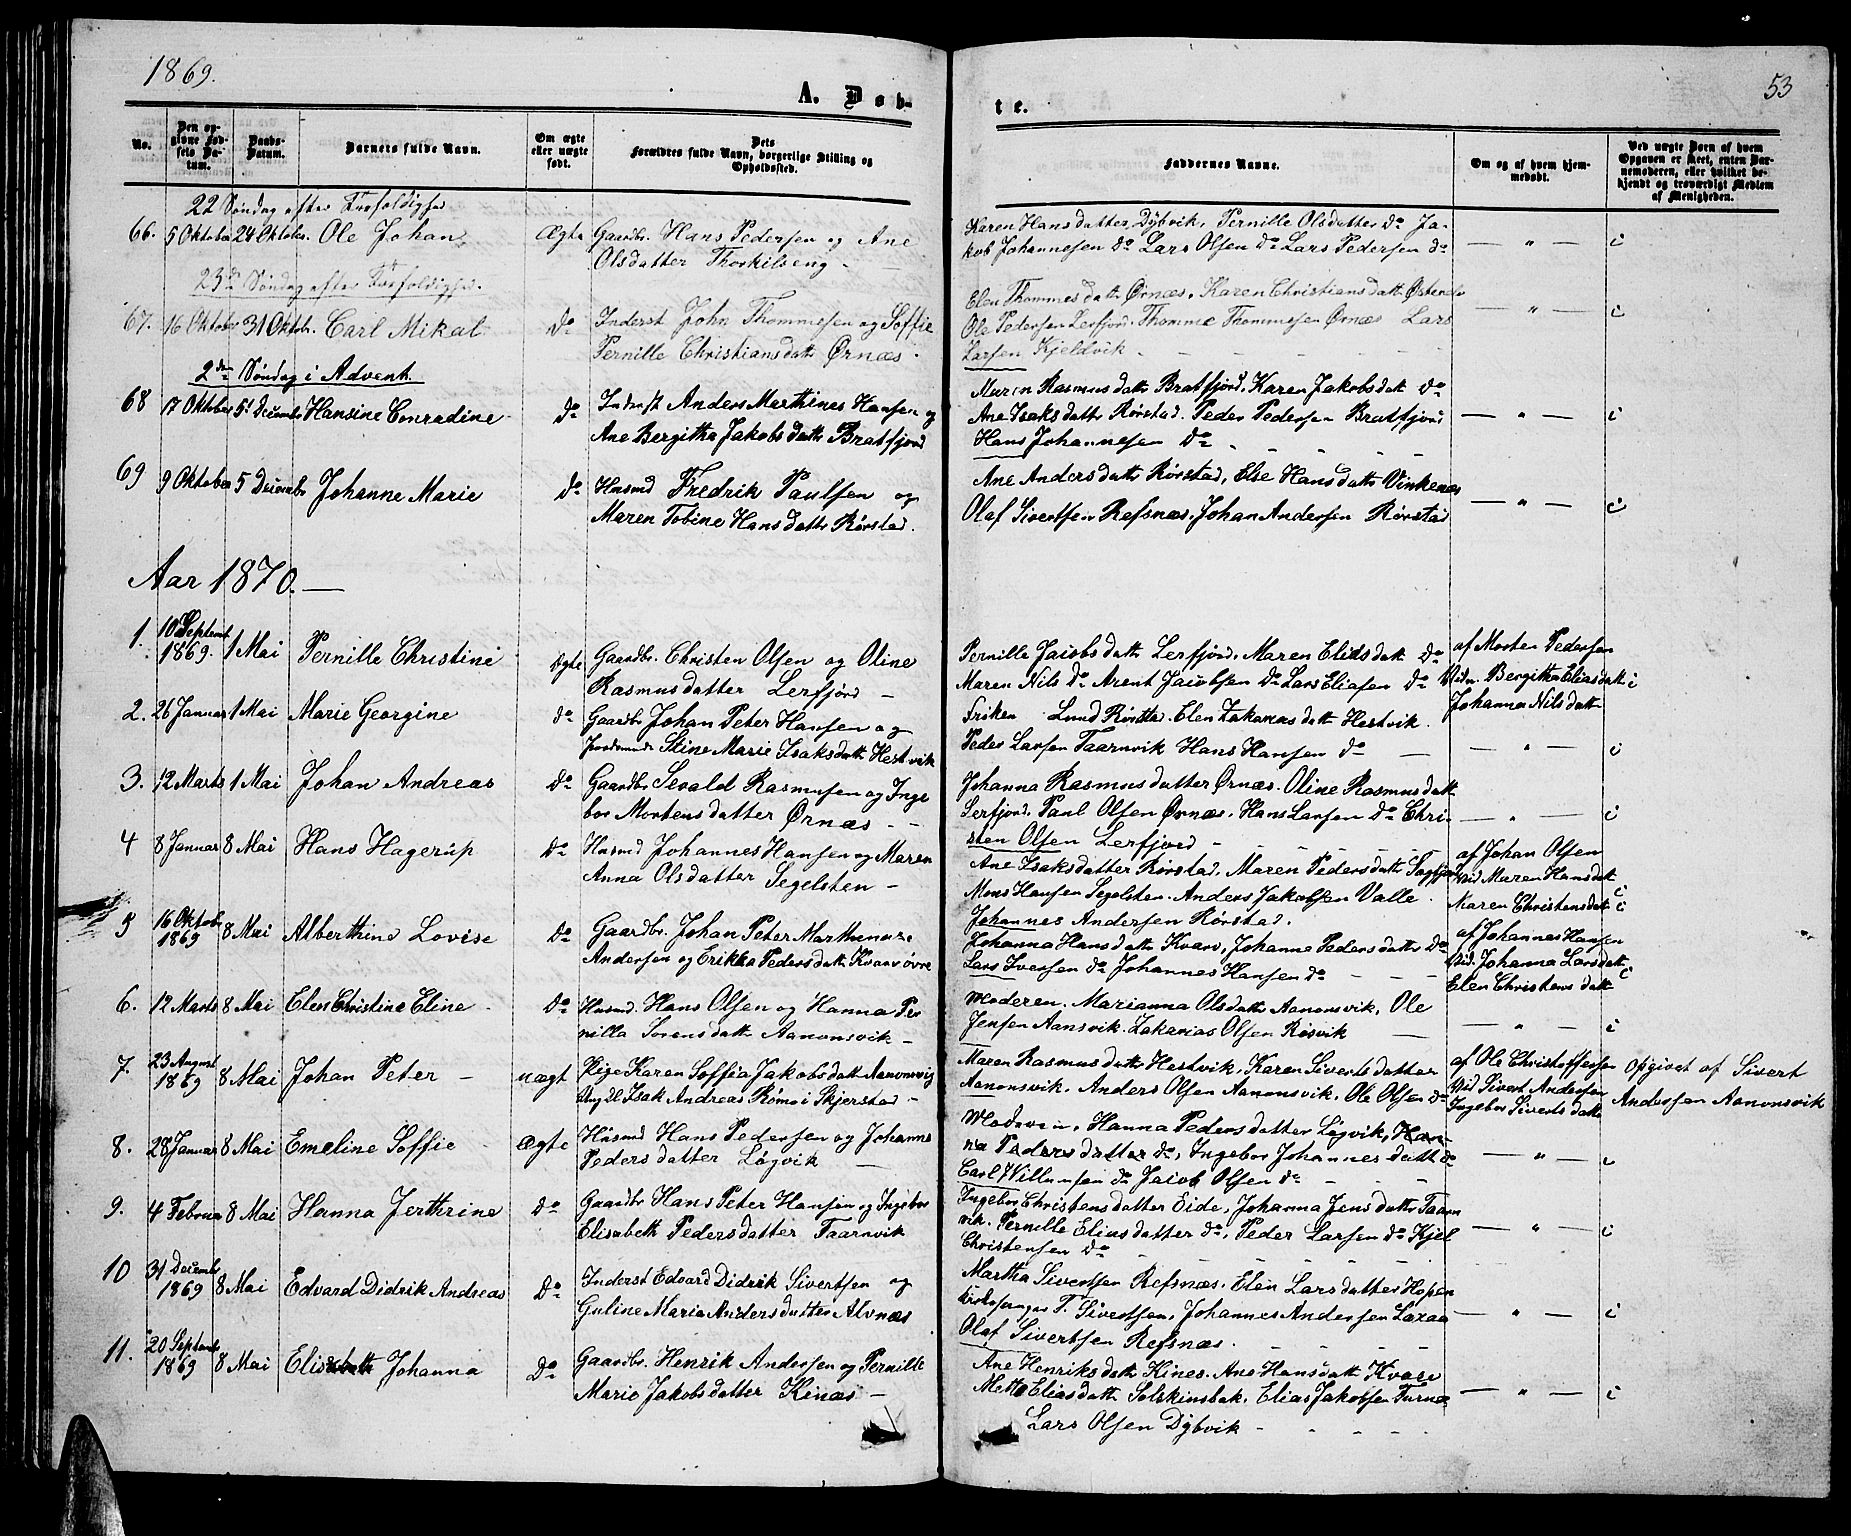 1869.
53
A. Døb-
te.
No.
Den op-
givne Fød-
sels Da-
tum.
Daabs-
Datum.
Barnets fulde Navn.
Om ægte
eller uægte
født.
Dets
Forældres fulde Navn, borgerlige Stilling og
Opholdssted.
Faddernes Navne.
Om og af hvem hjem-
medøbt.
Ved uægte Børn af hvem
Opgaven er skeet, enten Bar-
nemoderen, eller hvilket be-
kjendt og troværdigt Medlem
af Menigheden.
22 Søndag efter Trefoldighed
66. 5 Oktober 24 Oktober Ole Johan Ægte Gaardbr. Hans Pedersen og Ane
Olsdatter Thorkilseng -
Karen Hansdatter Dybvik, Pernille Olsdatter do Ja-
kob Johannesen do Lars Olsen do Lars Pedersen do
— " — i
23de Søndag efter Trefoldighed.
67. 16 Oktober 31 Oktob. Carl Mikal do Inderst John Thommesen og Soffie
Pernille Christiansdatt Ørnæs -
Elen Thommesdatt Ørnæs, Karen Christiansdatt
Ole Pedersen Lerfjord. Thomme Thommesen Ørnæs Lars
Larsen Kjeldvik - - - -
— " — i
2den Søndag i Advent.
68 17 Oktober 5 Decembr Hansine Conradine do Inderst Anders Marthines Hansen og
Ane Bergitha Jakobsdatt Bratfjord
Maren Rasmusdatt Bratfjord, Karen Jakobsdatt do
Ane Isaksdatt Rørstad. Peder Pedersen Bratfjord
Hans Johannesen do - - - -
— " — i
69 9 Oktober 5 Decembr Johanne Marie do Husmd Fredrik Paulsen og
Maren Tobine Hansdatt Rørstad.
Ane Andersdatt Rørstad, Else Hansdatt Vinkenæs
Olaf Sivertsen Refsnæs, Johan Andersen Rørstad
— " — i
Aar 1870. —
1. 10 Septemb
1869. 1 Mai Pernille Christine Ægte Gaardbr. Christen Olsen og Oline
Rasmusdatter Lerfjord -
Pernille Jacobsdatt Lerfjord, Maren Eliasdatt do
Maren Nils do Arent Jacobsen do Lars Eliasen do
af Morten Pedersen
Vidn. Bergitha Eliasdatt i
Johanna Nilsdatt
2. 26 Januar 1 Mai Marie Georgine do Gaardbr Johan Peter Hansen og
Stine Marie Isaksdatt Hestvik
Lund Elen Zakariasdatt Hestvik.
Peder Larsen Taarnvik Hans Hansen do —
— " — i
3. 12 Marts 1 Mai Johan Andreas do Gaardbr Sevald Rasmusen og Inge
bor Mortensdatter Ørnæs - -
Johanna Rasmusdatter Ørnæs. Oline Rasmusdatt
Lerfjord, Paul Olsen Ørnæs. Hans Larsen do Chri-
sten Olsen Lerfjord - - - -
— " — i
4 8 Januar 8 Mai Hans Hagerup do Husmd Johannes Hansen og Maren
Anna Olsdatter Segelsten -
Ane Isaksdatter Rørstad, Maren Pedersdatt
Mons Hansen Segelsten. Anders Jakobsen Valle.
Johannes Andersen Rørstad.
af Johan Olsen
Vid Maren Hansdatt
Maren Christensdatt i
5 16 Oktobr
1869 8 Mai Alberthine Lovise do Gaardbr. Johan Peter
Andersen og Erikka Pedersdatt Kvarv øvre
Johanna Hansdatt Kvarv, Johanne Pedersdatt do
Lars Iversen do Johannes Hansen do - - -
af Johannes Hansen
Vid. Johanna Larsdatt i
Elen Christensdatt
6. 12 Marts 8 Mai Elen Christina Eline do Husmd. Hans Olsen og Hanna Per
nilla Sørensdatt Aanonsvik -
Moderen. Marianna Olsdatt Aanonsvik, Ole
Jensen Aansvik. Zakarias Olsen Røsvik —
— " — i
7. 23 August
1869 8 Mai Johan Peter - uægt Pige Karen Soffia Jakobsdatt Aanonsvig
Ungkl Isak Andreas Romo i Skjerstad -
Maren Rasmusdatt Hestvik, Karen Sivertsdatter
Aanonsvik. Anders Olsen Aanonsvik, Ole Olsen do
af Ole Christoffersen
Vid Sivert Andersen
Ingebor Sivertsdatt
Opgivet af Sivert
Andersen Aanonsvik
8. 28 Januar 8 Mai Emeline Soffie Ægte Husmd Hans Pedersen og Johanna
Pedersdatter Løgvik —
Moderen, Hanna Pedersdatter Løgvik, Han-
na Pedersdatter do, Ingebor Johannesdatt do
Carl Willumsen do Jacob Olsen do - - -
— " — i
9. 4 Februa 8 Mai Hanna Jerthrine do Gaardbr Hans Peter Hansen og Ingebor
Elisabeth Pedersdatter Taarnvik
Ingebor Christensdatter Eide, Johanna Jensdatt Taarn
vik. Pernille Eliasdatter do, Peder Larsen do Kjel
Christensen do - - - -
— " — i
10 31 Decemb
1869 8 Mai Edvard Didrik Andreas do Inderst Edvard Didrik Sivertsen og
Guline Maria Andersdatter Alvnæs
Martha Sivertsen Refsnæs. Elen Larsdatter Hopen
Kirkesanger T. Sivertsen, Johannes Andersen Laxaa
Olaf Sivertsen Refsnæs. - - - -
— " — i
11. 20 Septemb
1869 8 Mai Elisabeth Johanna do Gaardbr. Henrik Andersen og Pernille
Marie Jakobsdatter Kinæs -
Ane Henriksdatt Kines. Ane Hansdatt Kvare
Mette Eliasdatt Solskinsbak, Elias Jakobsen Furnæ
Lars Olsen Dybvik - - - -
— " — i